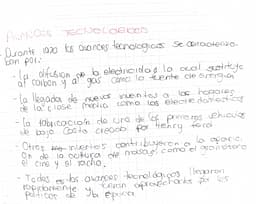 AVANCES TECNOLOGICOS
- Durante 1920 los avances tecnologicos se caracteriza
ban por:
- la difusion de la electricidad la cual sustituye
al carbon y al gas como la fuente de energia
- la llegada de nuevos inventos a los hogares
de la clase media como los electrodomesticos
- la fabricación de uno de los primeros vehiculos
de bajo costo creado por henry ford
- Otros inventos contribuyeron a la aparici
on de la cultura de masas, como el gramofono
el cine y el radio.
- Todos los avances tecnologicos llegaron
rapidamente y fueron aprovechados por los
politicos de la epoca